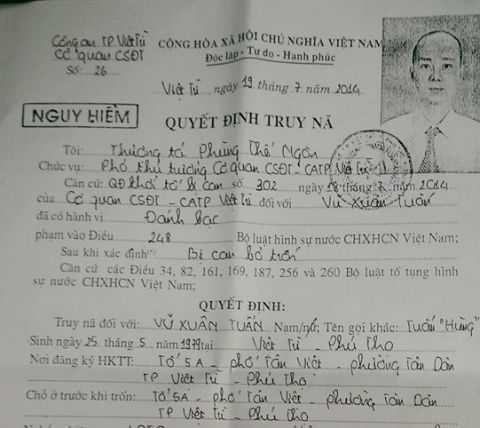 Công an TP Việt Trì
Cơ quan CSĐT
Số: 26
CỘNG HÒA XÃ HỘI CHỦ NGHĨA VIỆT NAM
Độc lập - Tự do - Hạnh phúc
Việt Trì, ngày 19 tháng 7 năm 2014
NGUY HIỂM
QUYẾT ĐỊNH TRUY NÃ
Tôi: Thượng tá Phùng Thế Ngôn
Chức vụ: Phó thủ trưởng Cơ quan CSĐT - CATP Việt Trì
Căn cứ: QĐ khởi tố bị can số 302 ngày 18 tháng 7 năm 2014
của Cơ quan CSĐT - CATP Việt Trì đối với Vũ Xuân Tuấn
đã có hành vi Đánh bạc
phạm vào Điều 248 Bộ luật hình sự nước CHXHCN Việt Nam;
Sau khi xác định Bị can bỏ trốn
Căn cứ các Điều 34, 82, 161, 169, 187, 256 và 260 Bộ luật tố tụng hình
sự nước CHXHCN Việt Nam;
QUYẾT ĐỊNH:
Truy nã đối với: VŨ XUÂN TUẤN Nam/nữ; Tên gọi khác: Tuấn "Hùng"
Sinh ngày 25 tháng 5 năm 1979 tại Việt Trì - Phú Thọ
Nơi đăng ký HKTT: Tổ 5A - phố Tân Việt - phường Tân Dân
TP Việt Trì - Phú Thọ
Chỗ ở trước khi trốn: Tổ 5A - phố Tân Việt - phường Tân Dân
TP Việt Trì - Phú Thọ